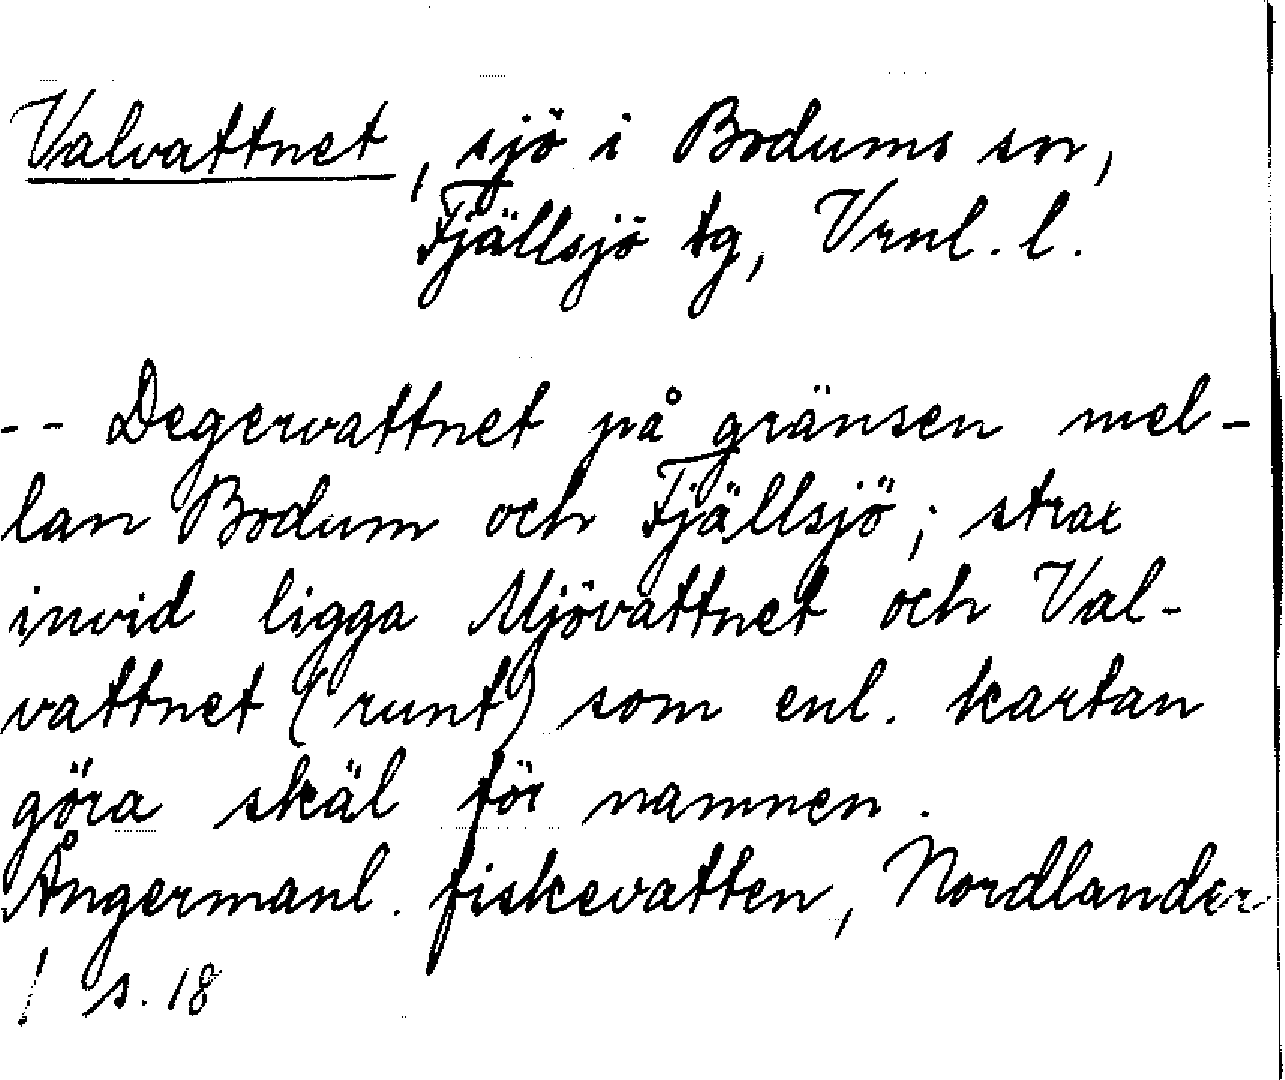 Valvattnet, sjö i Bodums sn,
Fjällsjö tg, Vrnl. l.
-- Degervattnet på gränsen mel-
lan Bodum och Fjällsjö; strax
invid ligga Mjövattnet och Val-
vattnet (runt) som enl. kartan
göra skäl för namnen.
Ångermanl. fiskevatten, Nordlander
/ s. 18